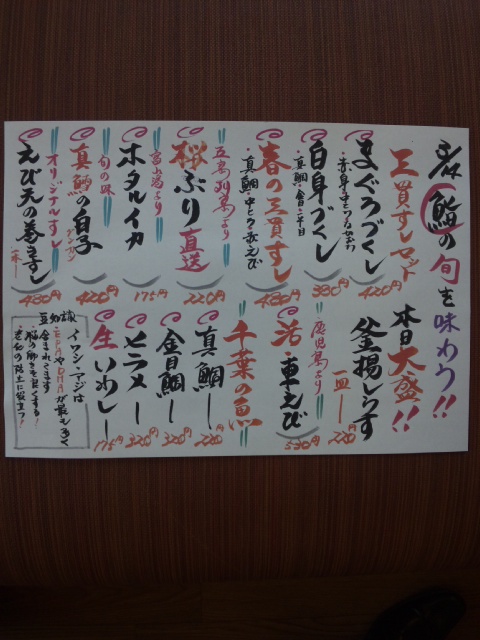 3/4 鮨の旬を味わう!!
三貫すしセット
まぐろづくし
・赤身・中とろ・ねぎとろ
420円
白身づくし
・真鯛・金目・平目
380円
春の三貫すし
・真鯛・中とろ・赤えび
480円
五島列島より
桜ぶり直送
220円
富山湾より
ホタルイカ
175円
旬の味
真鱈の白子
グンカン
420円
オリジナルすし
えび天の巻ずし
一本
480円
本日大盛!!
釜揚しらす
一皿ー
220円
鹿児島より
活・車えび
530円
千葉の魚
真鯛ー
220円
金目鯛ー
320円
ヒラメー
320円
生いわしー
175円
豆知識
イワシ・アジは
・EPAやDHAが最も多く
含まれてます
・脳の働きを良くする!
・老化の防止に役立つ!